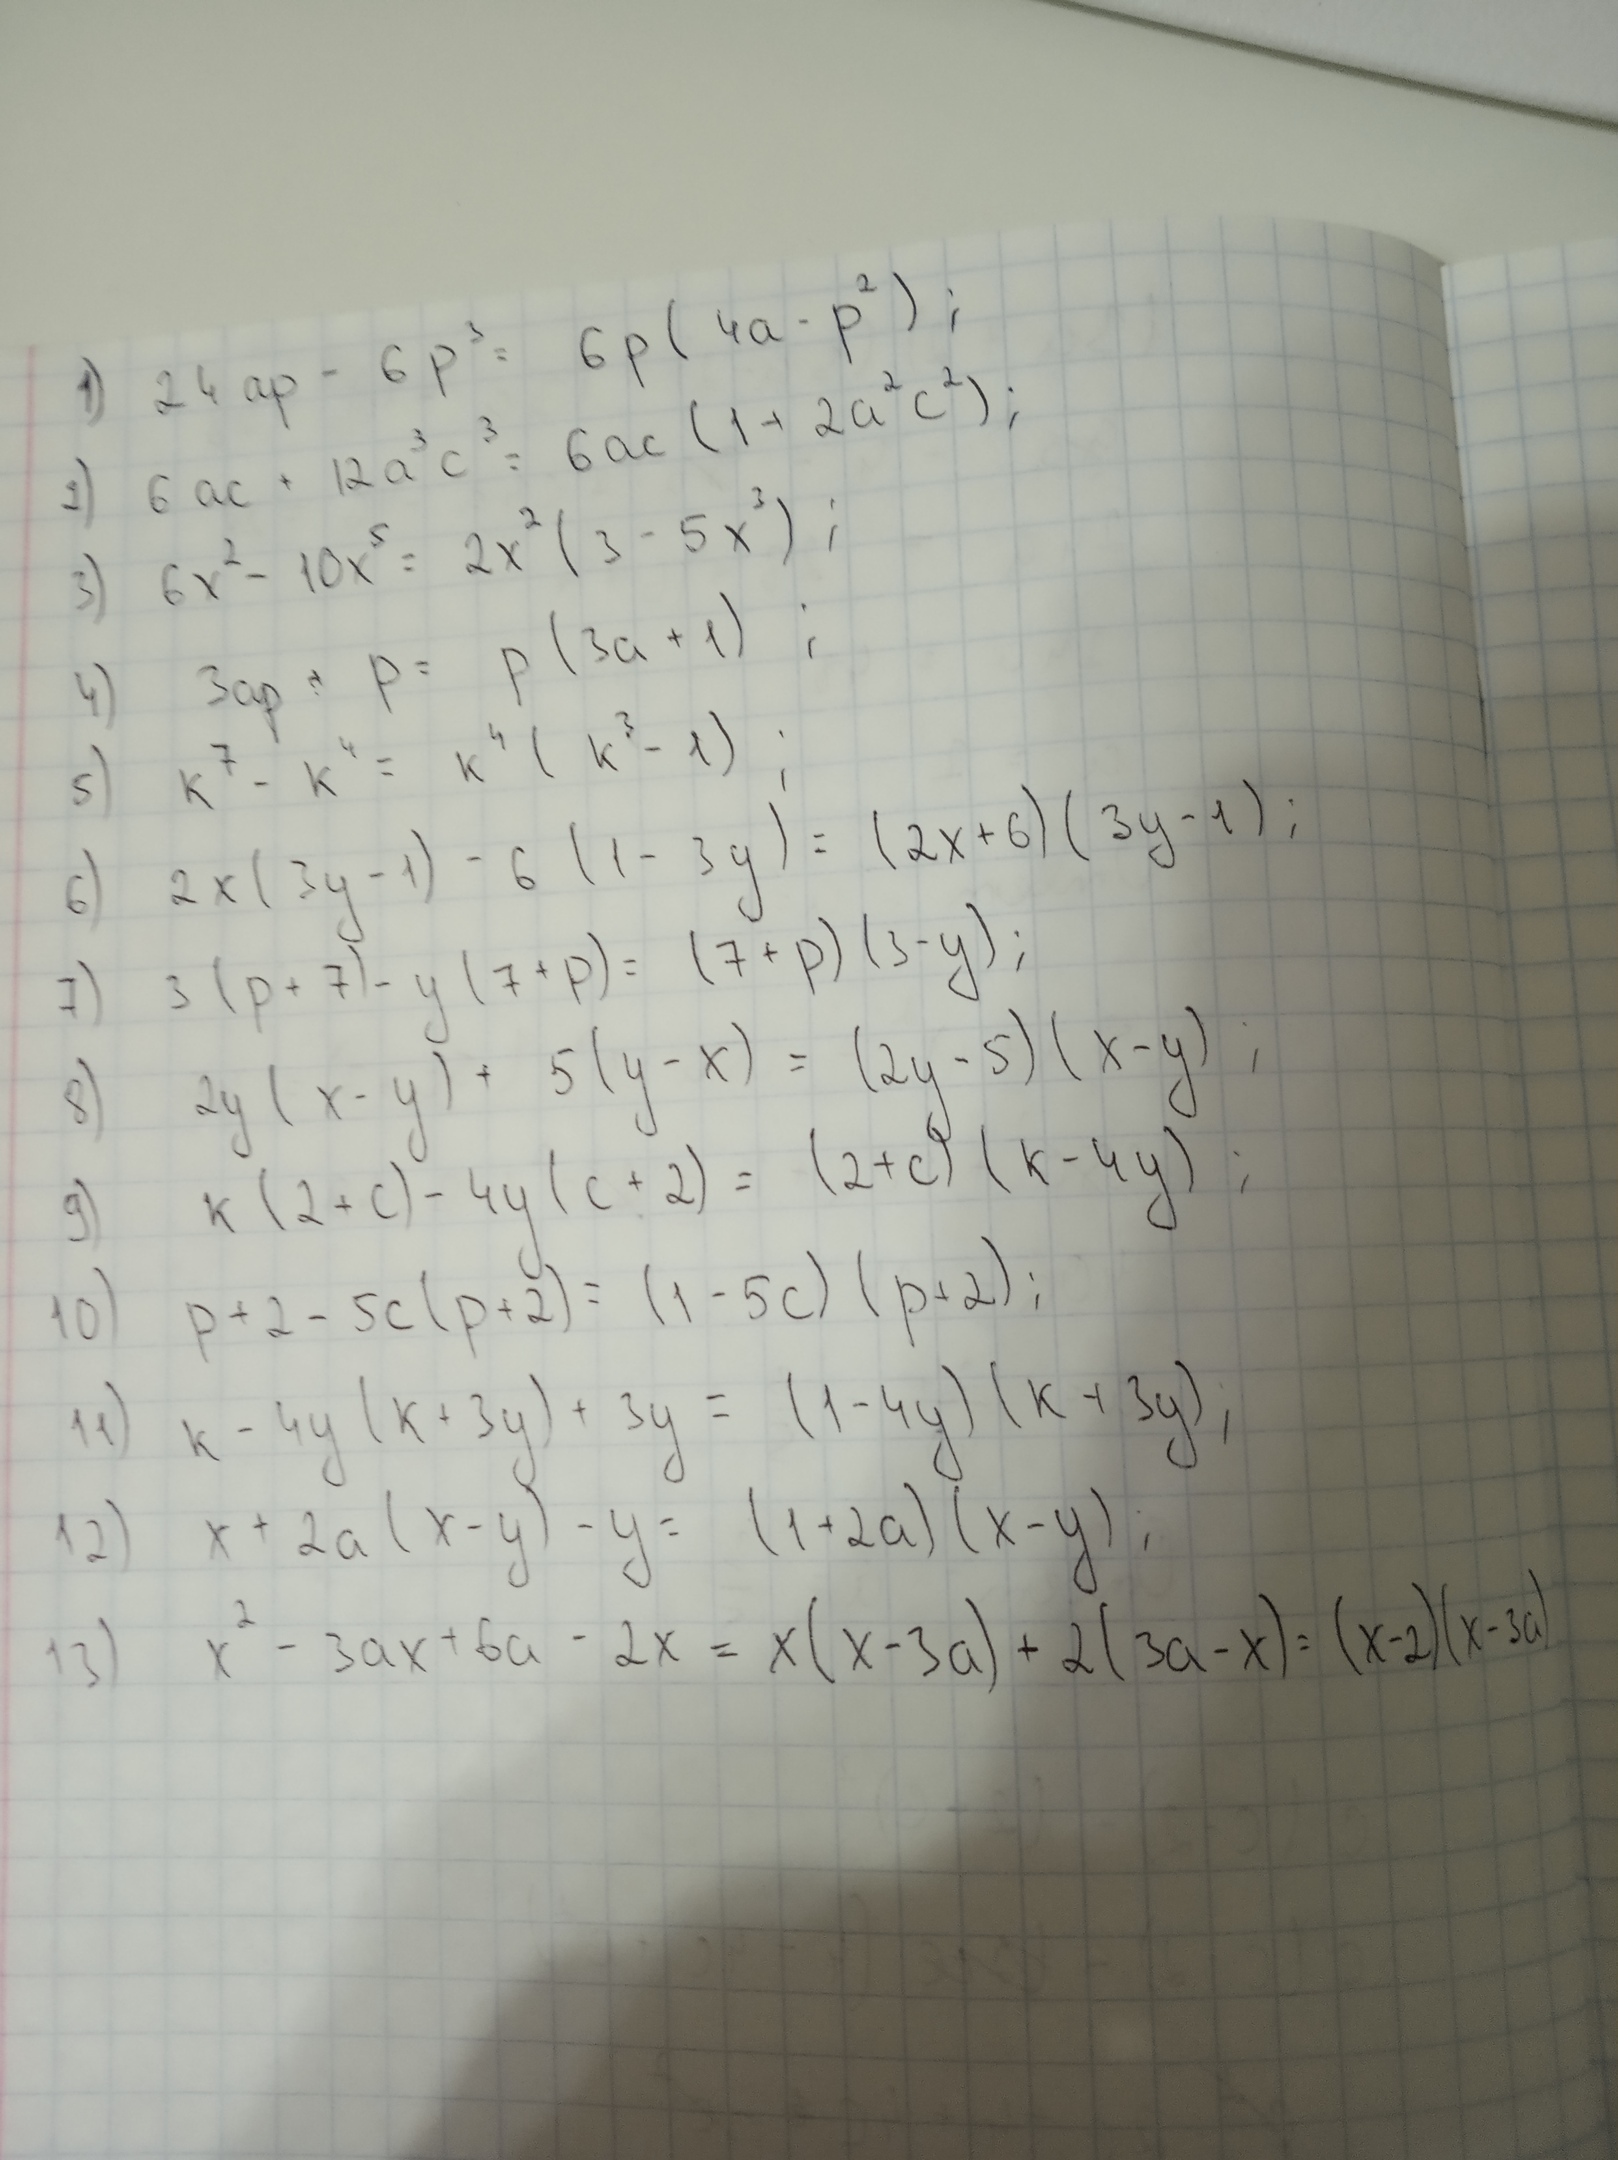 1) 24ap - 6p³ = 6p(4a - p²);
2) 6ac + 12a³c³ = 6ac(1 + 2a²c²);
3) 6x² - 10x⁵ = 2x²(3 - 5x³);
4) 3ap + p = p(3a + 1);
5) k⁷ - k⁴ = k⁴(k³ - 1);
6) 2x(3y - 1) - 6(1 - 3y) = (2x + 6)(3y - 1);
7) 3(p + 7) - y(7 + p) = (7 + p)(3 - y);
8) 2y(x - y) + 5(y - x) = (2y - 5)(x - y);
9) k(2 + c) - 4y(c + 2) = (2 + c)(k - 4y);
10) p + 2 - 5c(p + 2) = (1 - 5c)(p + 2);
11) k - 4y(k + 3y) + 3y = (1 - 4y)(k + 3y);
12) x + 2a(x - y) - y = (1 + 2a)(x - y);
13) x² - 3ax + 6a - 2x = x(x - 3a) + 2(3a - x) = (x - 2)(x - 3a)